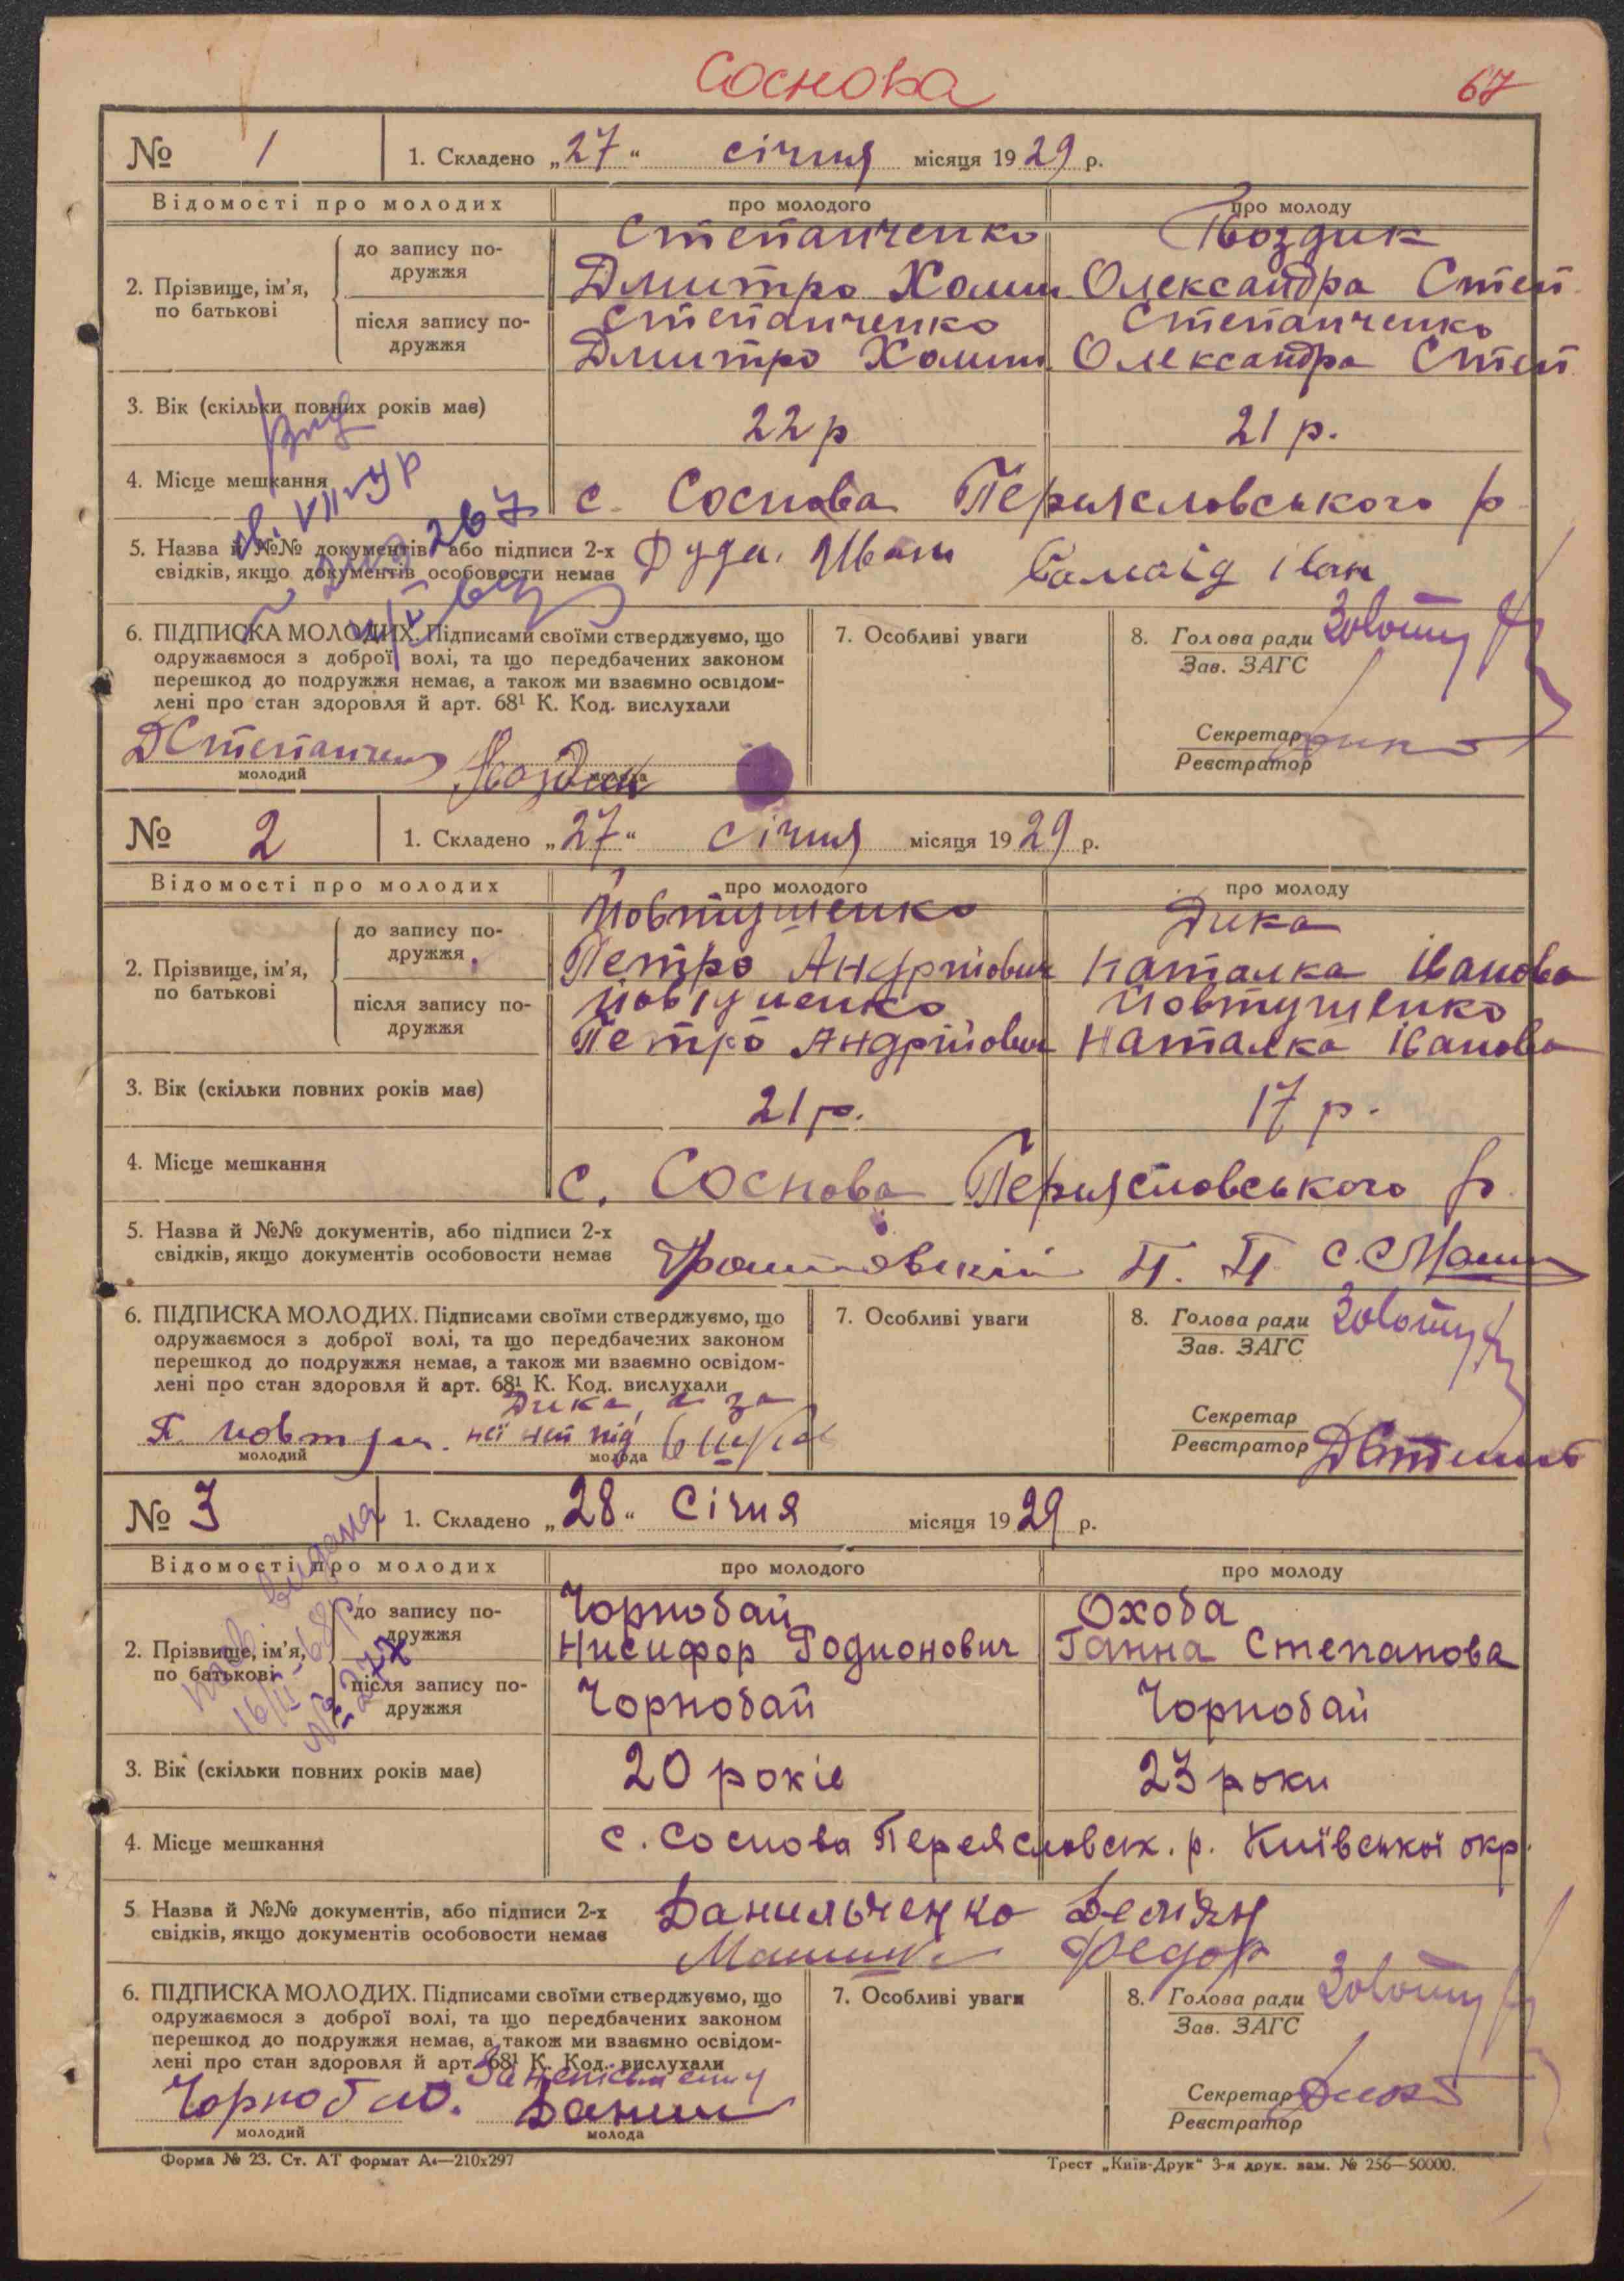 Соснова
67
№ 1 1. Складено „27" січня місяця 1929 р.
Відомості про молодих про молодого про молоду
2. Прізвище, ім'я, по батькові
до запису подружжя
Степанченко Гвоздик
Дмитро Хомич Олександра Степ.
після запису подружжя
Степанченко Степанченко
Дмитро Хомич Олександра Степ
3. Вік (скільки повних років має) 22 р 21 р.
4. Місце мешкання с. Соснова Переясловського р
5. Назва й №№ документів, або підписи 2-х
свідків, якщо документів особовости немає
Дуда Иван Іван
267
6. ПІДПИСКА МОЛОДИХ. Підписами своїми стверджуємо, що
одружаємося з доброї волі, та що передбачених законом
перешкод до подружжя немає, а також ми взаємно освідом-
лені про стан здоровля й арт. 68¹ К. Код. вислухали
ДСтепанченко Гвоздик
молодий молода
7. Особливі уваги
8. Голова ради
Зав. ЗАГС
Секретар
Реєстратор
№ 2 1. Складено „27" січня місяця 1929 р.
Відомості про молодих про молодого про молоду
2. Прізвище, ім'я, по батькові
до запису подружжя
Йовтушенко Дика
Петро Андрійович Наталка Іванова
після запису подружжя
Йовтушенко Йовтушенко
Петро Андрійович Наталка Іванова
3. Вік (скільки повних років має) 21 р. 17 р.
4. Місце мешкання с. Соснова Переясловського р.
5. Назва й №№ документів, або підписи 2-х
свідків, якщо документів особовости немає
П. П. С. С.
6. ПІДПИСКА МОЛОДИХ. Підписами своїми стверджуємо, що
одружаємося з доброї волі, та що передбачених законом
перешкод до подружжя немає, а також ми взаємно освідом-
лені про стан здоровля й арт. 68¹ К. Код. вислухали
Дика, а за
П. Йовтуш. неї
молодий молода
7. Особливі уваги
8. Голова ради
Зав. ЗАГС
Секретар
Реєстратор
№ 3 1. Складено „28" Січня місяця 1929 р.
Відомості про молодих про молодого про молоду
2. Прізвище, ім'я, по батькові
до запису подружжя
Чорнобай Охоба
Нисифор Родионович Ганна Степанова
після запису подружжя
Чорнобай Чорнобай
видана
3. Вік (скільки повних років має) 20 років 23 роки
4. Місце мешкання с. Соснова Переясловськ. р. Київської окр.
5 Назва й №№ документів, або підписи 2-х
свідків, якщо документів особовости немає
Данильченко Демян
Федор
6. ПІДПИСКА МОЛОДИХ. Підписами своїми стверджуємо, що
одружаємося з доброї волі, та що передбачених законом
перешкод до подружжя немає, а також ми взаємно освідом-
лені про стан здоровля й арт. 68¹ К. Код. вислухали
молодий молода
7. Особливі уваги
8. Голова ради
Зав. ЗАГС
Секретар
Реєстратор
Форма № 23. Ст. АТ формат А₄—210х297
Трест „Київ-Друк" 3-я друк. зам. № 256—50000.